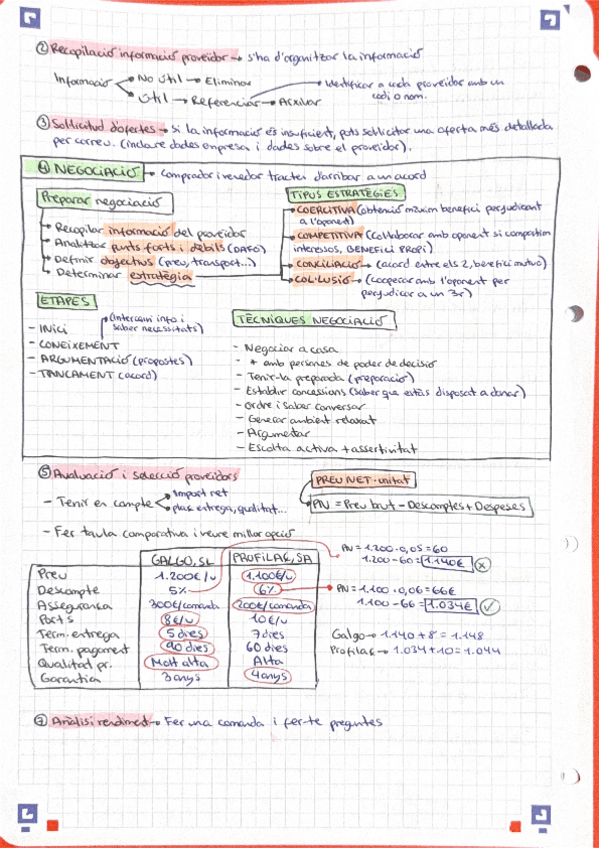 ② Recopilació informació proveidor → s'ha d'organitzar la informació
Informació → No Útil → Eliminar
→ Útil → Referenciar → Arxivar
→ Identificar a cada proveidor amb un
codi o nom.
③ Sol·licitud d'ofertes → si la informació és insuficient, pots sol·licitar una oferta més detallada
per correu. (incloure dades empresa i dades sobre el proveidor).
④ NEGOCIACIÓ → comprador i venedor tracten d'arribar a un acord
Preparar negociació
→ Recopilar informació del proveidor
→ Analitzar punts forts i dèbils (DAFO)
→ Definir objectius (preu, transport...)
→ Determinar estratègia
TIPUS ESTRATÈGIES
→ COERCITIVA (obtenció màxim benefici perjudicant
a l'oponent)
→ COMPETITIVA (Col·laborar amb oponent si comparteixen
interessos, BENEFICI PROPI)
→ CONCILIACIÓ → (acord entre els 2, benefici mutu)
→ COL·LUSIÓ → (cooperar amb l'oponent per
perjudicar a un 3r)
ETAPES
- INICI
- CONEIXEMENT
→ (Intercanvi info i
saber necessitats)
- ARGUMENTACIÓ (propostes)
- TANCAMENT (acord)
TÈCNIQUES NEGOCIACIÓ
- Negociar a casa
- + amb persones de poder de decisió
- Tenir-la preparada (preparació)
- Establir concessions (saber que estàs disposat a donar)
- Ordre i saber conversar
- Generar ambient relaxat
- Argumentar
- Escolta activa + assertivitat
⑤ Avaluació i selecció proveidors
- Tenir en compte → Import net
→ plaç entrega, qualitat...
PREU NET · unitat
→ PN = Preu brut - Descomptes + Despeses
- Fer taula comparativa i veure millor opció
GALGO, SL PROFILAC, SA
Preu 1.200€/u 1.100€/u
Descompte 5% 6%
Assegurança 300€/comanda 200€/comanda
Ports 8€/u 10€/u
Term. entrega 5 dies 7 dies
Term. pagament 90 dies 60 dies
Qualitat pr. Molt alta Alta
Garantia 3 anys 4 anys
PN = 1.200 · 0,05 = 60
1.200 - 60 = 1.140€ ⓧ
PN = 1.100 · 0,06 = 66€
1.100 - 66 = 1.034€ ✓
Galgo → 1.140 + 8 = 1.148
Profilac → 1.034 + 10 = 1.044
⑦ Anàlisi rendiment → Fer una comanda i fer-te preguntes